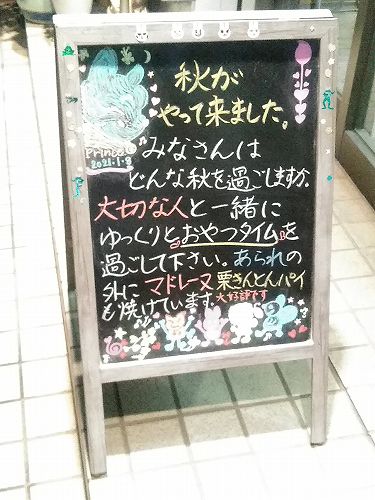 秋が
やって来ました。
Prince
2021.1.8
みなさんは
どんな秋を過ごしますか。
大切な人と一緒に
ゆっくりとおやつタイムを
過ごして下さい。あられの
外に マドレーヌ 栗きんとんパイ
も焼けています。大好評です